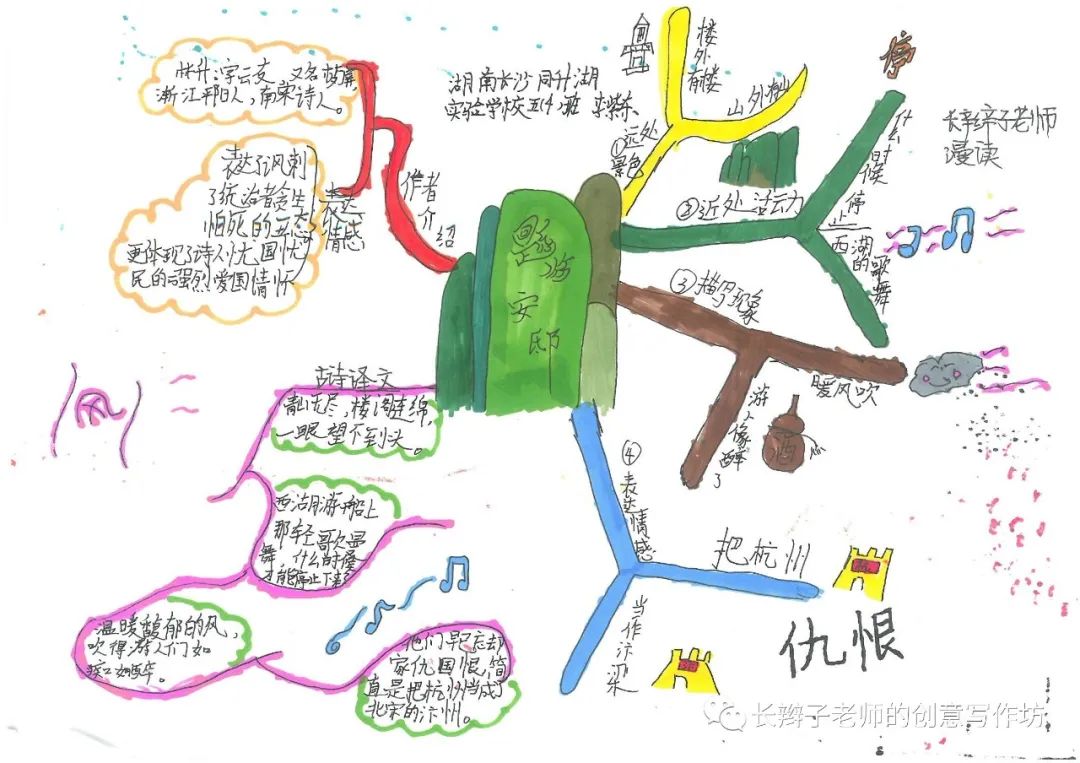 林升:字云支,又名梦屏,
浙江平阳人,南宋诗人。
表达了讽刺
了统治者贪生
怕死的丑态
更体现了诗人忧国忧
民的强烈爱国情怀
表达
情感
作者
介绍
湖南长沙同升湖
实验学校五(4)班
题临
安邸
①远处
景色
楼外
有楼
山外有山
停
什么时候
停止
西湖
的歌舞
②近处活动
长辫子老师
漫读
③描写现象
暖风吹
游人像醉了
酒
④表达情感
把杭州
当作汴梁
仇恨
古诗译文
青山无尽,楼阁连绵,
一眼望不到头。
西湖游船上
那轻歌曼
舞,什么时候
才能停止下来
温暖馥郁的风,
吹得游人们如
痴如醉。
他们早已忘却
家仇国恨,简
直是把杭州当成了
北宋的汴州。
风
长辫子老师的创意写作坊